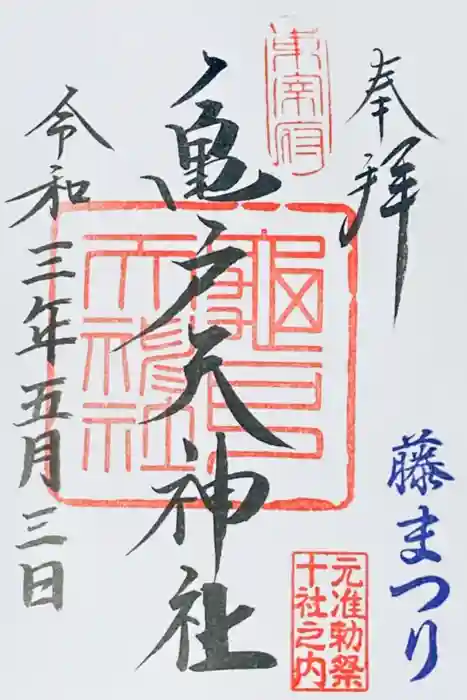 奉拝
藤まつり
東宰府
亀戸天神社
龜戸
天神社
元准勅祭
十社之内
令和三年五月三日